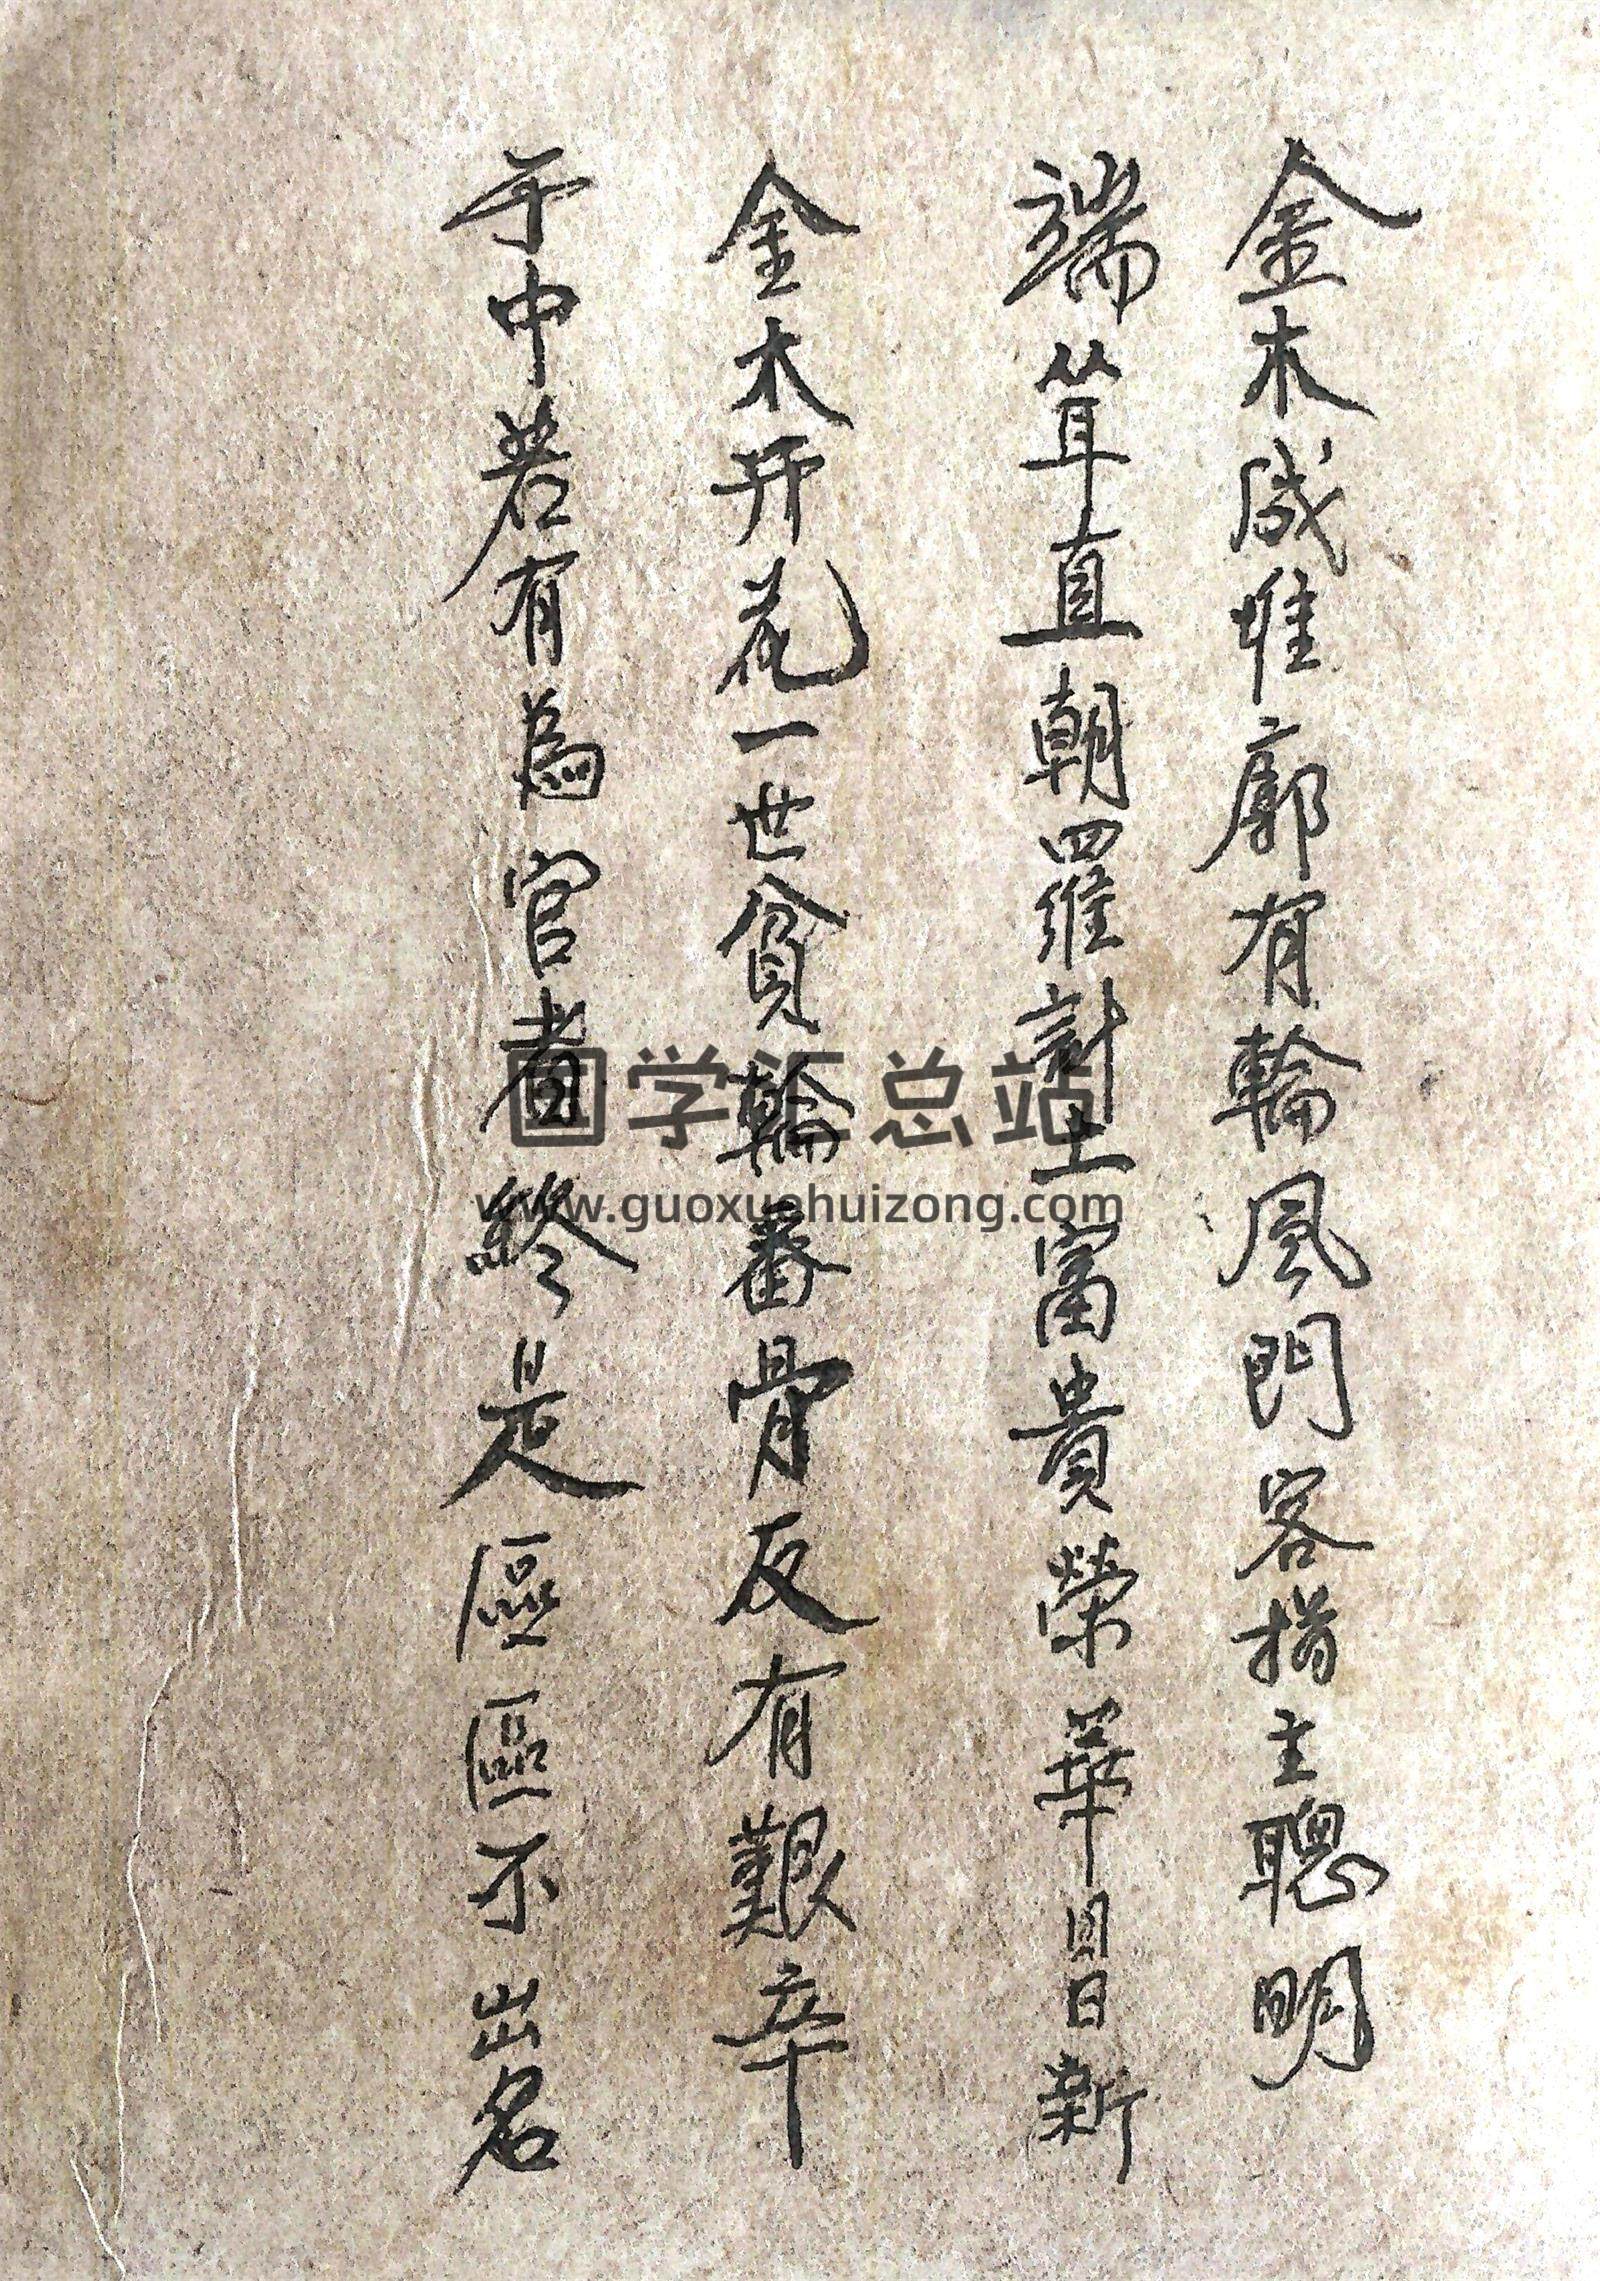 金木成堆廓有輪風門容指主聰明
端耸直朝羅計上富貴榮華日日新
金木开花一世貧輪番骨反有艱辛
于中若有為官者終是區區不出名
国学汇总站
www.guoxuehuizong.com